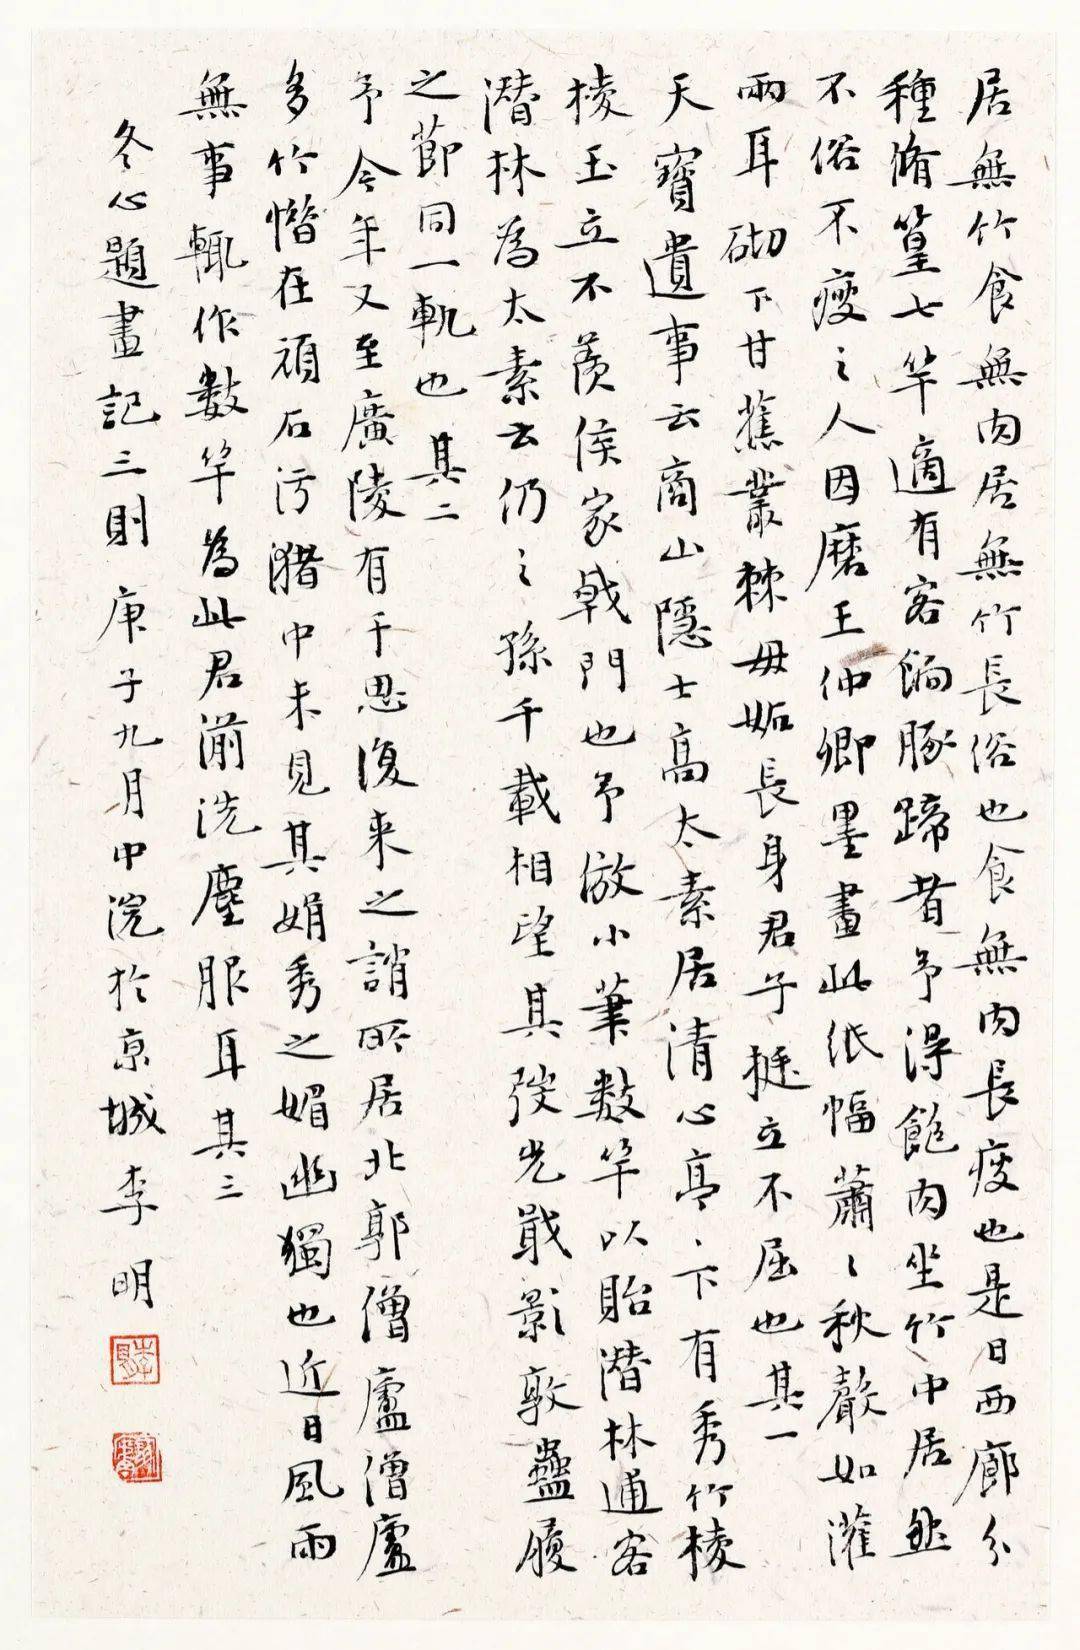 居無竹食無肉居無竹長俗也食無肉長瘦也是日西廊分
種脩篁七竿適有客餉豚蹄者予得飽肉坐竹中居然
不俗不瘦之人因磨王仲卿墨畫此紙幅蕭〻秋聲如灌
兩耳砌下甘蕉叢棘毋妬長身君子挺立不屈也其一
天寶遺事云商山隱士高太素居清心亭〻下有秀竹棱
棱玉立不羨侯家戟門也予倣小筆數竿以貽潛林逋客
潛林為太素雲仍之孫千載相望其発光戢影敦蠱履
之節同一軌也其二
予今年又至廣陵有千思復來之誚所居北郭僧廬僧廬
多竹惜在頑石污豬中未見其娟秀之媚幽獨也近日風雨
無事輒作數竿為此君湔洗塵服耳其三
冬心題畫記三則 庚子九月中浣於京城李明